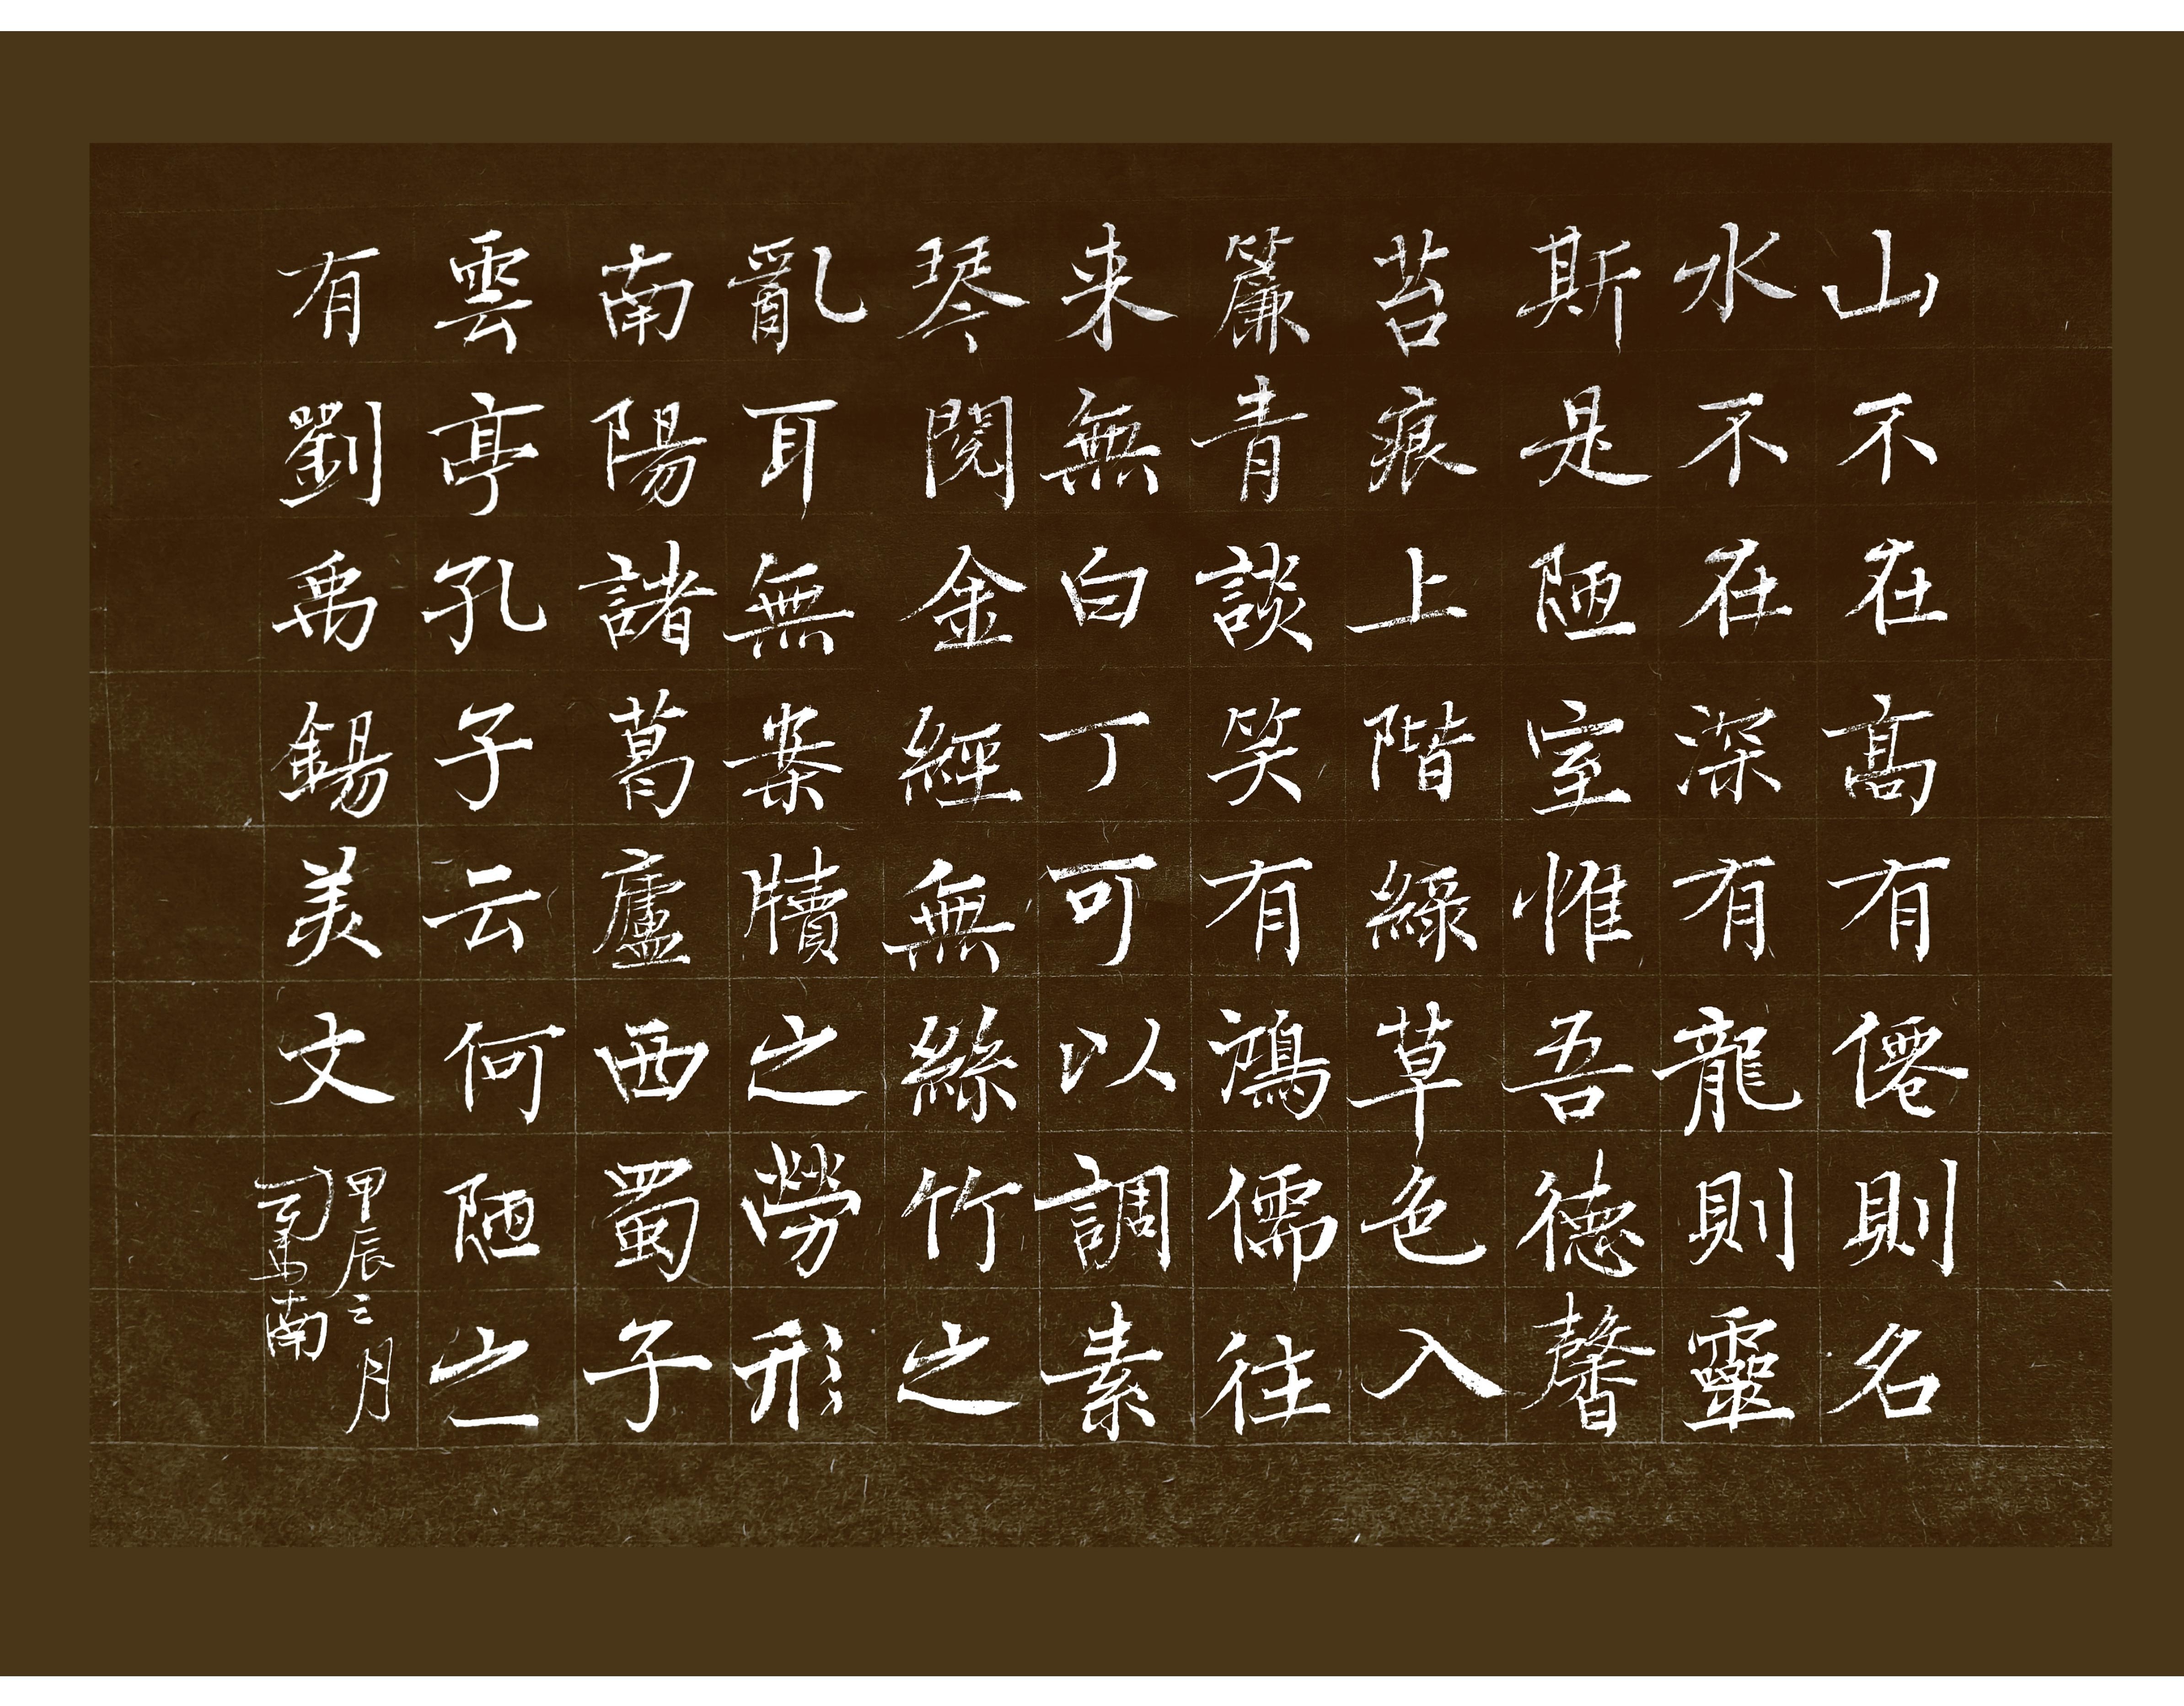 山不在高有僊則名
水不在深有龍則靈
斯是陋室惟吾德馨
苔痕上階綠草色入
簾青談笑有鴻儒往
来無白丁可以調素
琴閱金經無絲竹之
亂耳無案牘之勞形
南陽諸葛廬西蜀子
雲亭孔子云何陋之
有劉禹錫美文
甲辰三月
南